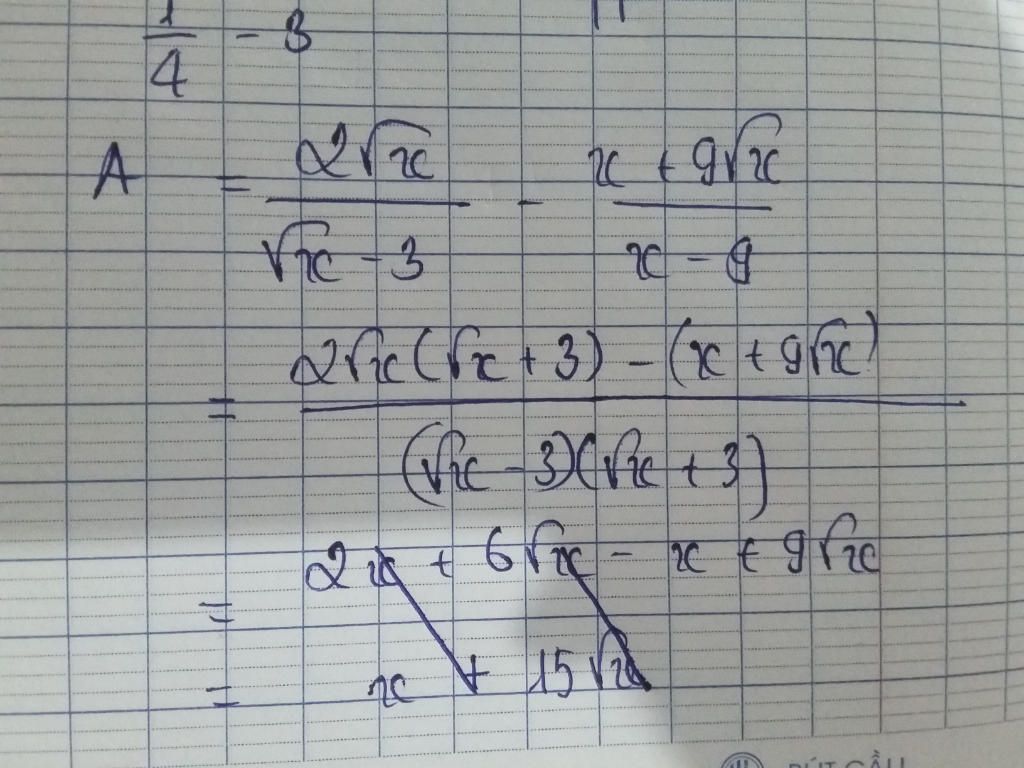 1/4 - 3
A = 2√x / (√x - 3) - (x + 9√x) / (x - 9)
= (2√x(√x + 3) - (x + 9√x)) / ((√x - 3)(√x + 3))
= 2x + 6√x - x + 9√x
= x + 15√x
BÚT